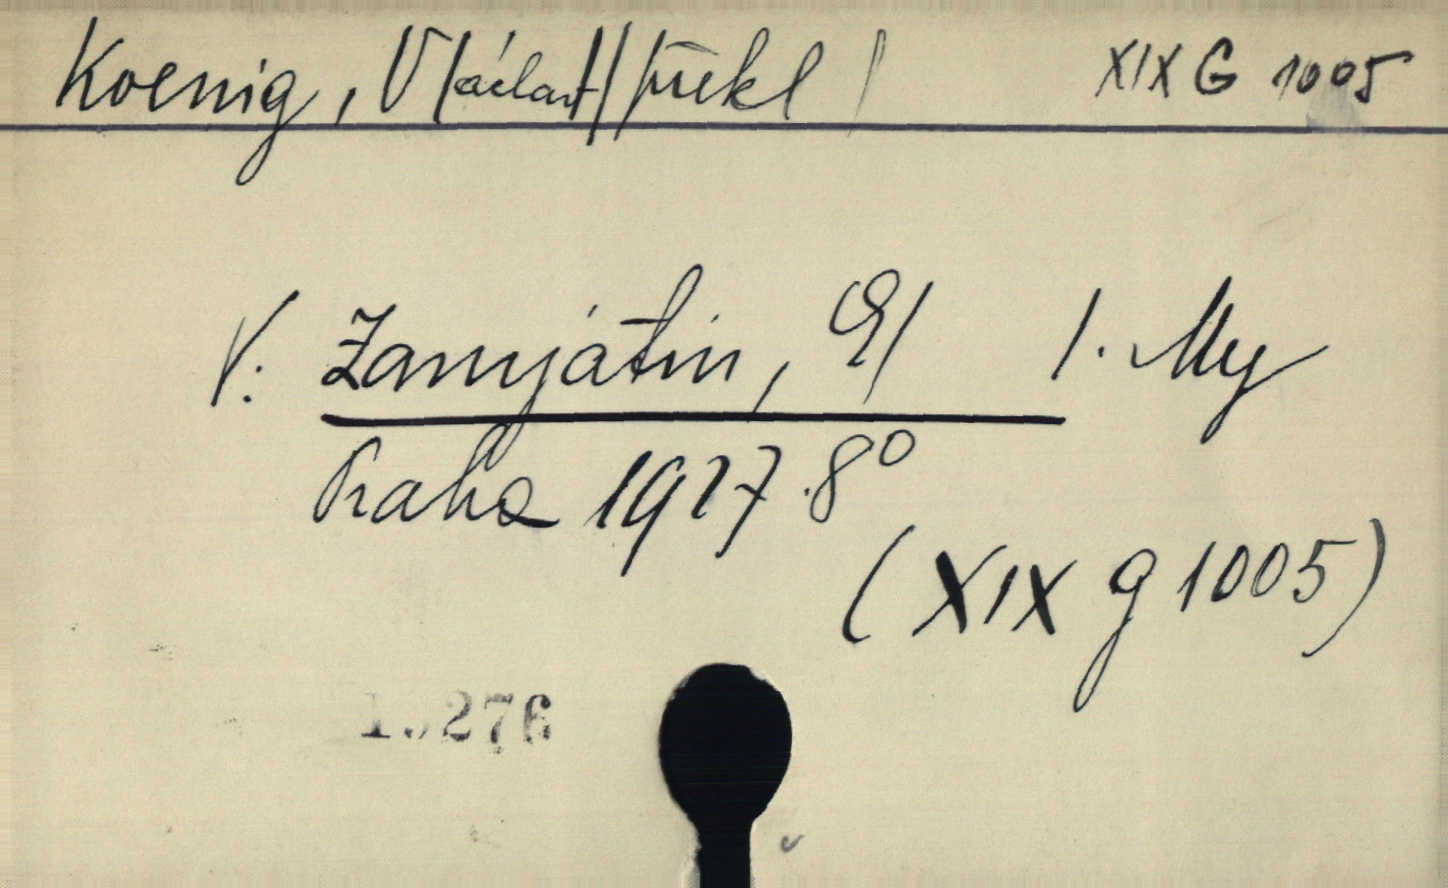 Koenig, V/áclav//překl/ XIX G 1005
V. Zamjátin, E/ /. My
Praha 1927.8°
(XIX g 1005)
276